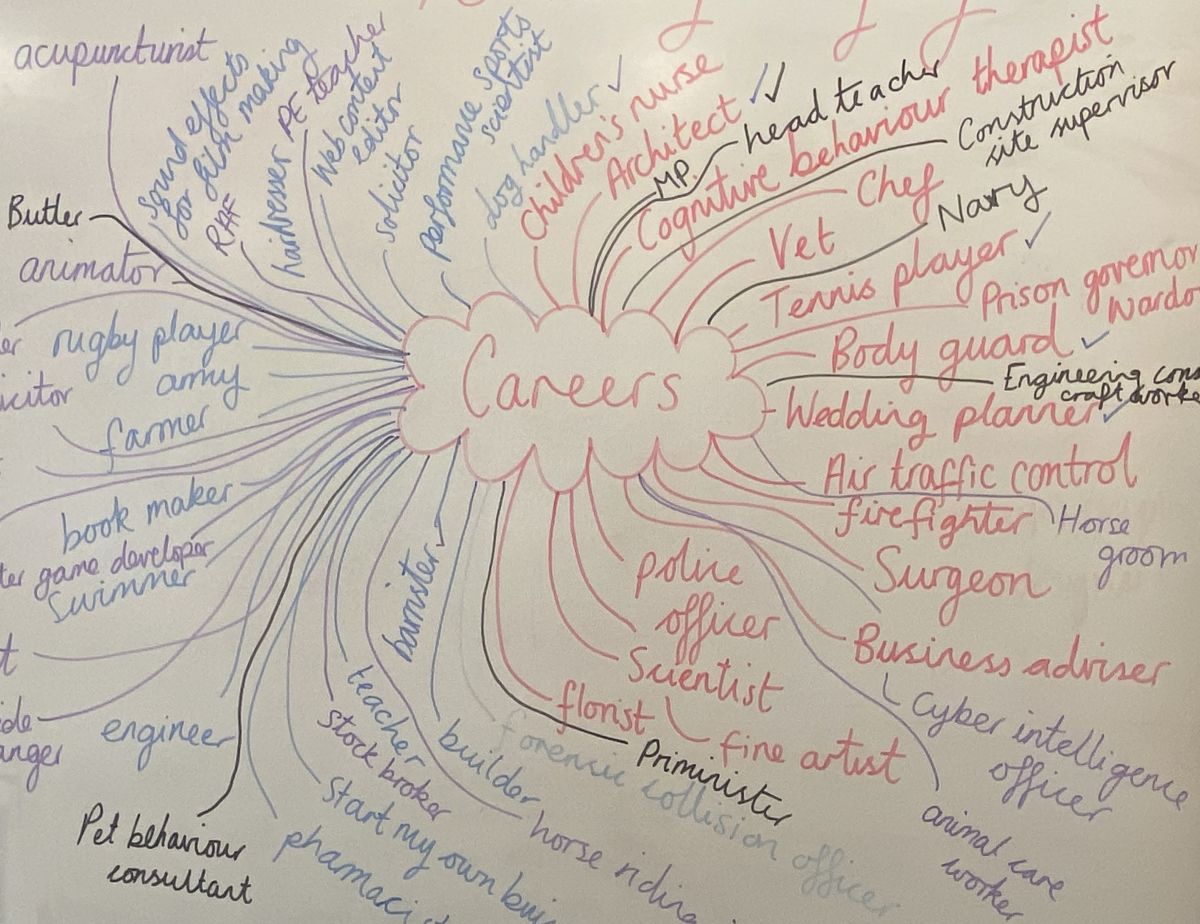 acupuncturist
Sound effects
for film making
RAF
hairdresser
PE teacher
Web content
editor
solicitor
performance sports
scientist
dog handler
Children's nurse
Architect
MP
head teacher
Cognitive behaviour therapist
Construction
site supervisor
Chef
Navy
Vet
Tennis player
Prison governor
Body guard
Engineering
craft worke
Wedding planner
Air traffic control
firefighter
Horse
groom
Surgeon
Business adviser
Cyber intelligence
officer
animal care
worker
police
officer
Scientist
fine artist
florist
Priminister
forensic collision officer
builder
barrister
horse riding
teacher
stock broker
Start my own
pharmacist
Pet behaviour
consultant
engineer
swimmer
game developer
book maker
farmer
army
rugby player
animator
Butler
Careers